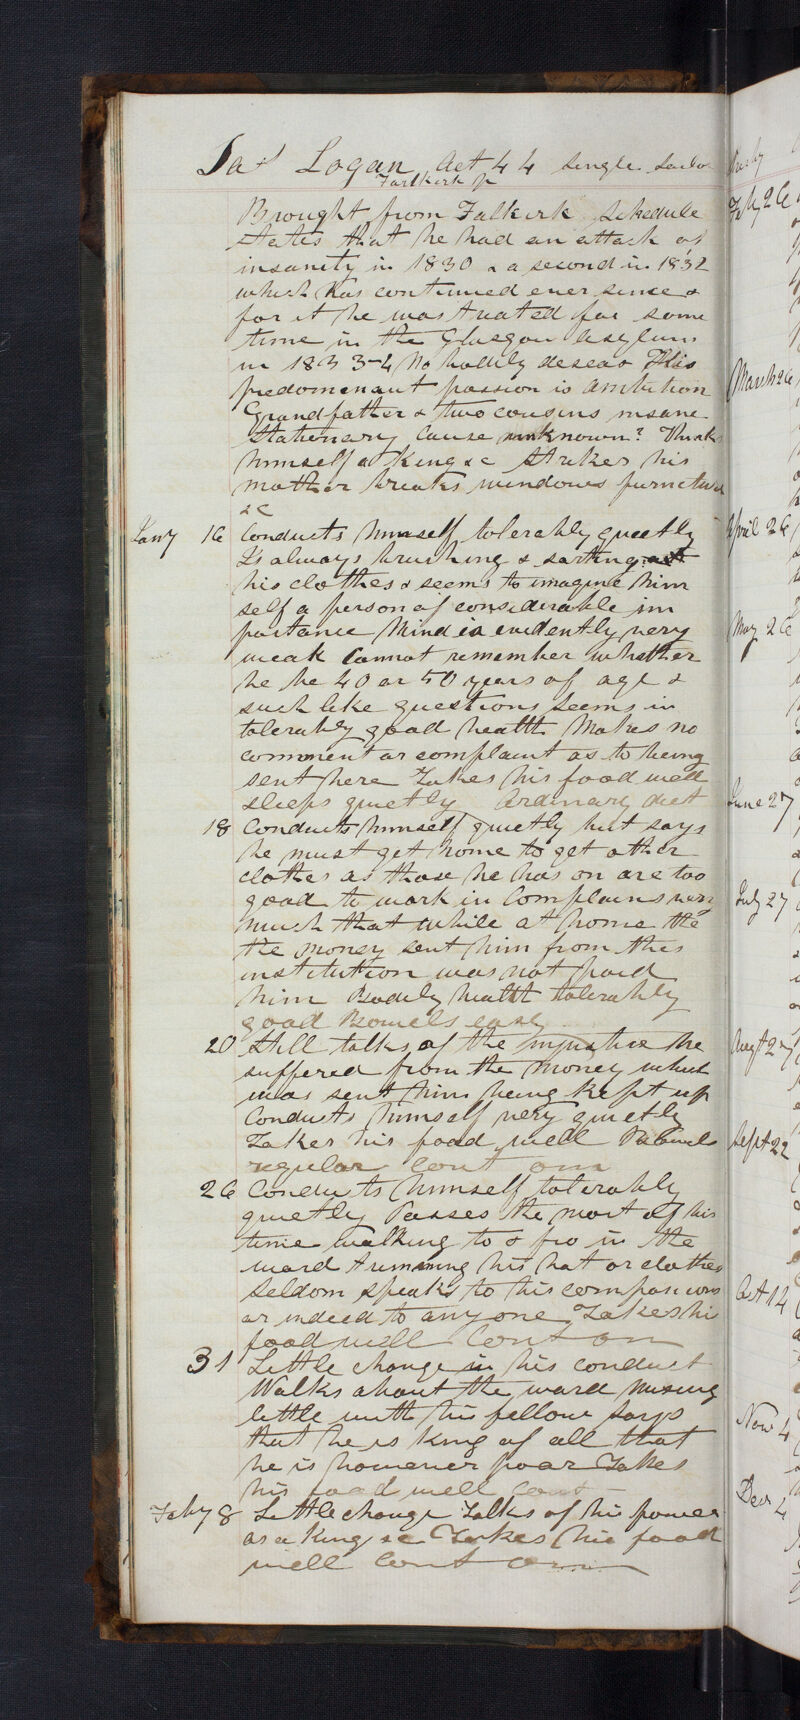 Jas Logan Aet 44 single
Falkirk p
Brought from Falkirk Schedule
states that he had an attack of
insanity in 1830 & a second in 1832
which has continued ever since &
for it he was treated for some
time in the Glasgow Asylum
in 1833-4 No bodily diseas His
predominant passion is ambition
Grandfather & two cousins insane
Stationary Cause unknown? Thinks
himself a King &c Strikes his
mother breaks windows furniture
&c
Jany 16 Conducts himself tolerably quietly
Is always brushing & sorting
his clothes & seems to imagine him
self a person of considerable im
portance Mind is evidently very
weak Cannot remember whether
he be 40 or 50 years of age &
such like questions Seems in
tolerably good health Makes no
comment or complaint as to being
sent here Takes his food well
sleeps quietly Ordinary diet
18 Conducts himself quietly but says
he must get home to get other
clothes as those he has on are too
good to work in Complains very
much that while at home the
the money sent him from this
institution was not paid
him Bodily health tolerably
good Bowels easy
20 Still talks of the injustice he
suffered from the money which
was sent him being kept up
Conducts himself very quietly
Takes his food well Bowels
regular Cont om
26 Conducts himself tolerably
quietly Passes the most of his
time walking to & fro in the
ward trimming his hat or clothes
Seldom speaks to his companions
or indeed to any one Takes his
food well Cont om
31 Little change in his conduct
Walks about the ward mixing
little with his fellows says
that he is King of all that
he is however poor Takes
his food well Cont
Feby 8 Little change Talks of his power
as a King &c Takes his food
well Cont om
Feby 26
March 26
April 26
May 26
June 27
July 27
Augt 27
Sept 22
Oct 14
Nov 4
Decr 4